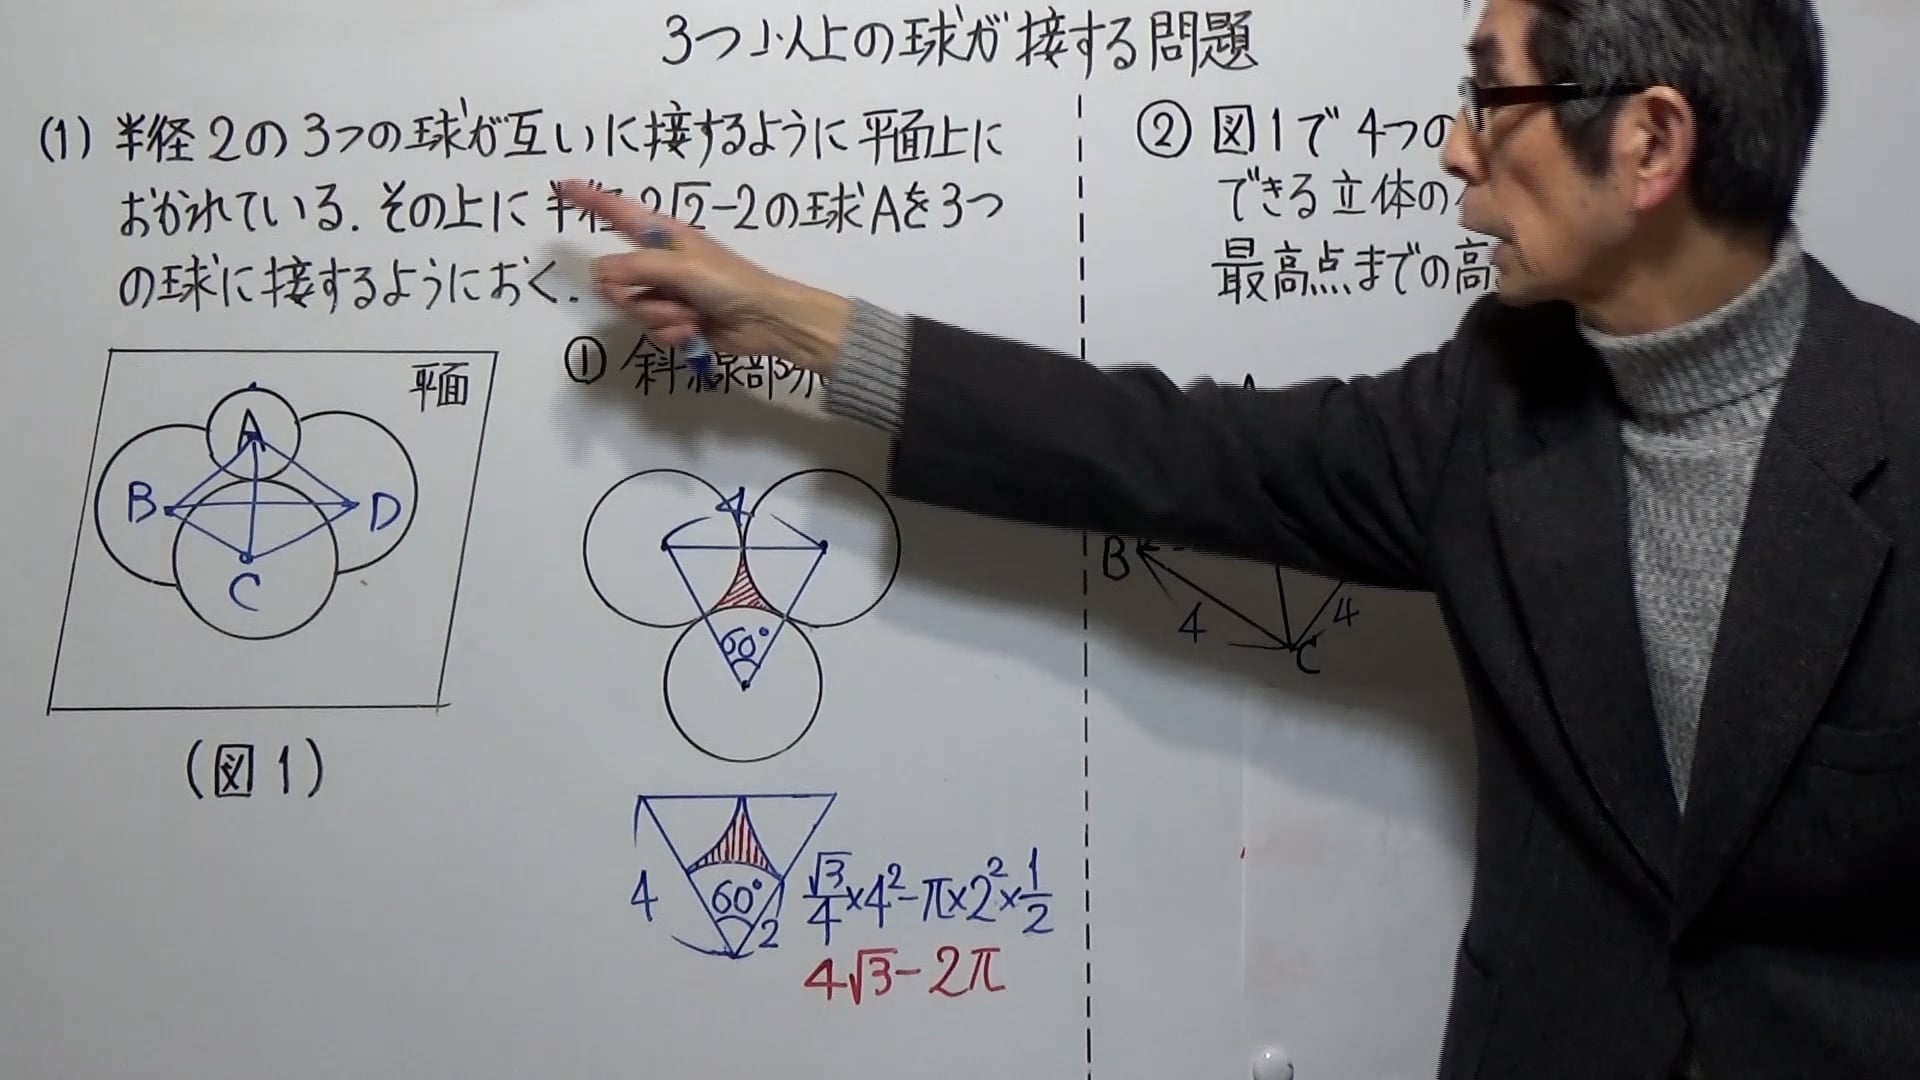 3つ以上の球が接する問題
(1) 半径2の3つの球が互いに接するように平面上に
おかれている. その上に 半径 2√2-2の球Aを3つ
の球に接するようにおく.
平面
A
B
D
C
(図1)
① 斜線部分
4
60°
4
60°
2
√3/4×4²-π×2²×1/2
4√3-2π
② 図1で4つの
できる立体の
最高点までの高
B
4
4
C